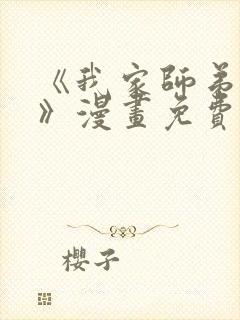 《我家師弟
》漫畫免費
櫻子